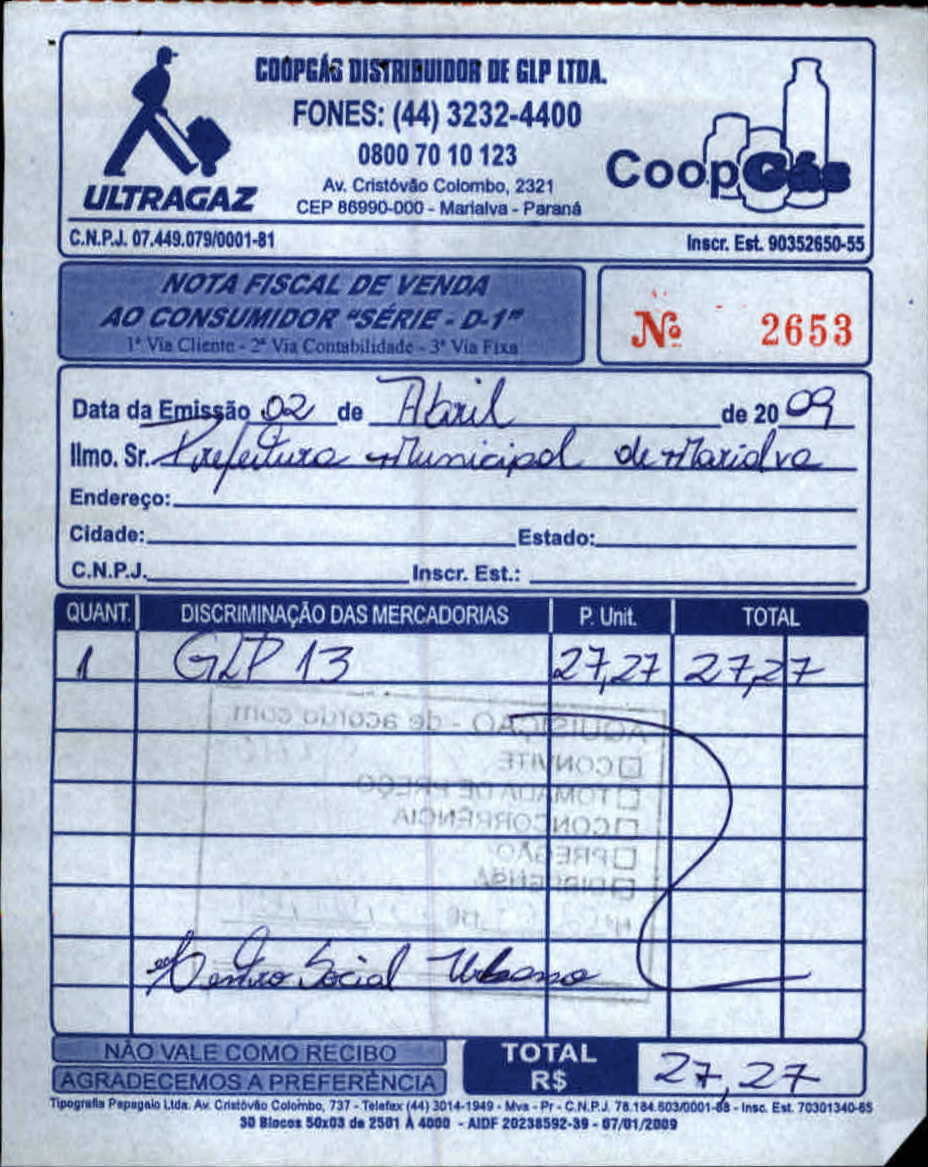 COOPGÁS DISTRIBUIDOR DE GLP LTDA.
FONES: (44) 3232-4400
0800 70 10 123
Av. Cristóvão Colombo, 2321
CEP 86990-000 - Marialva - Paraná
ULTRAGAZ
CoopGás
C.N.P.J. 07.449.079/0001-81
Inscr. Est. 90352650-55
NOTA FISCAL DE VENDA
AO CONSUMIDOR "SÉRIE - D-1"
1ª Via Cliente - 2ª Via Contabilidade - 3ª Via Fixa
Nº 2653
Data da Emissão 02 de Abril de 2009
Ilmo. Sr. Prefeitura Municipal de Marialva
Endereço:
Cidade: Estado:
C.N.P.J. Inscr. Est.:
QUANT. DISCRIMINAÇÃO DAS MERCADORIAS P. Unit. TOTAL
1 GLP 13 27,27 27,27
AQUISIÇÃO - de acordo com
CONVITE
TOMADA DE PREÇO
CONCORRÊNCIA
PREGÃO
Centro Social Urbano
NÃO VALE COMO RECIBO
AGRADECEMOS A PREFERÊNCIA
TOTAL R$ 27,27
Tipografia Papagaio Ltda. Av. Cristóvão Colombo, 737 - Telefax (44) 3014-1949 - Mva - Pr - C.N.P.J. 78.184.603/0001-88 - Insc. Est. 70301340-65
30 Blocos 50x03 de 2501 À 4000 - AIDF 20238592-39 - 07/01/2009